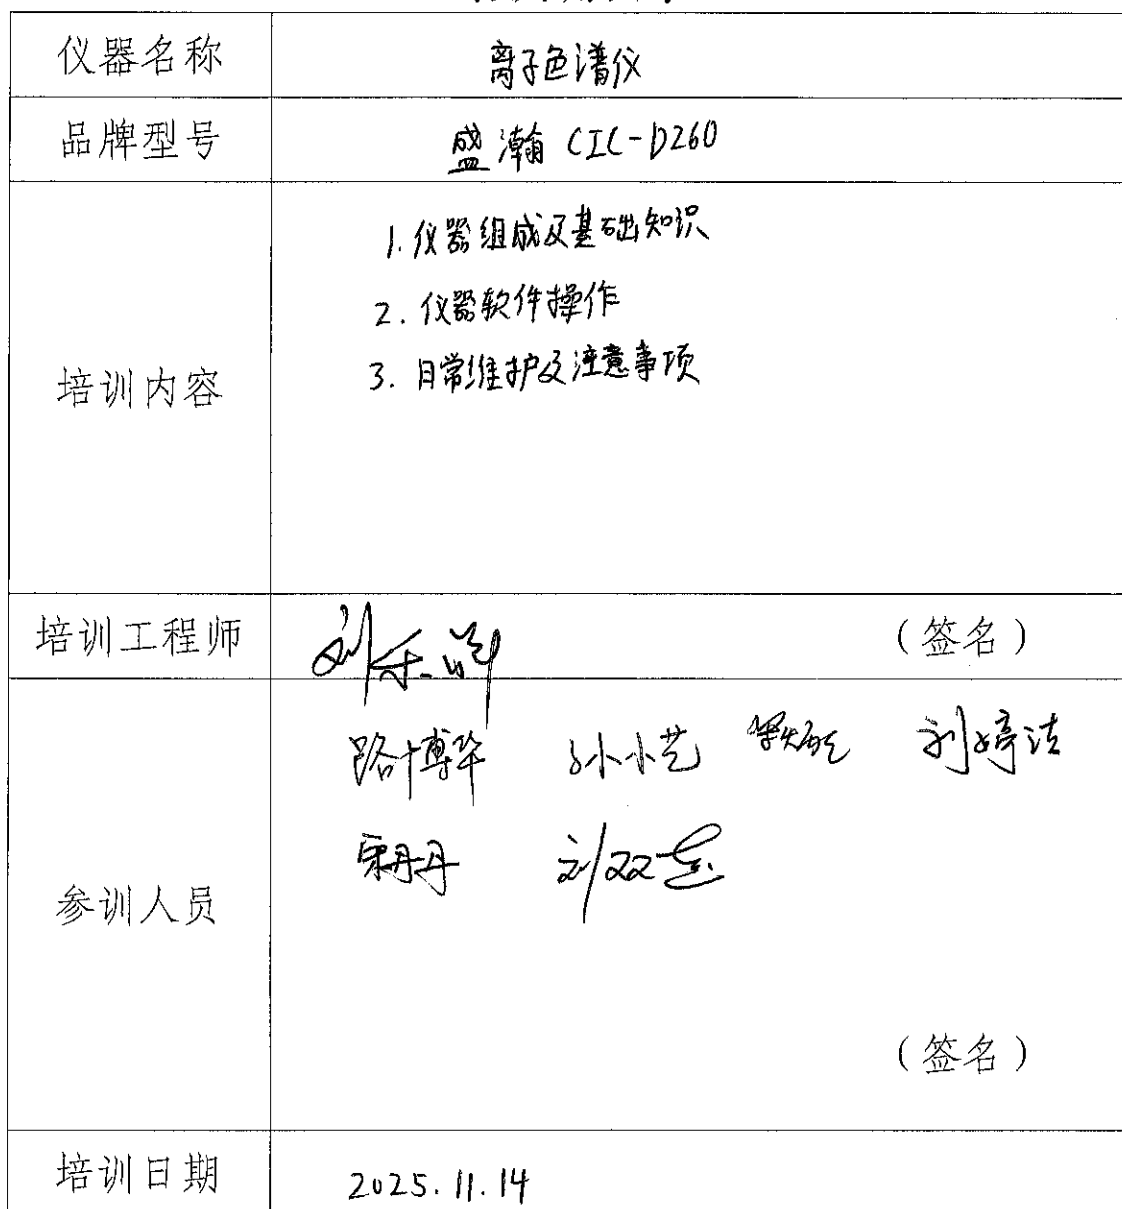 仪器名称 离子色谱仪
品牌型号 盛瀚 CIC-D260
1. 仪器组成及基础知识
2. 仪器软件操作
3. 日常维护及注意事项
培训内容
培训工程师 (签名)
路博华 孙小艺 刘婷洁
宋丹丹 刘双
参训人员
(签名)
培训日期 2025.11.14